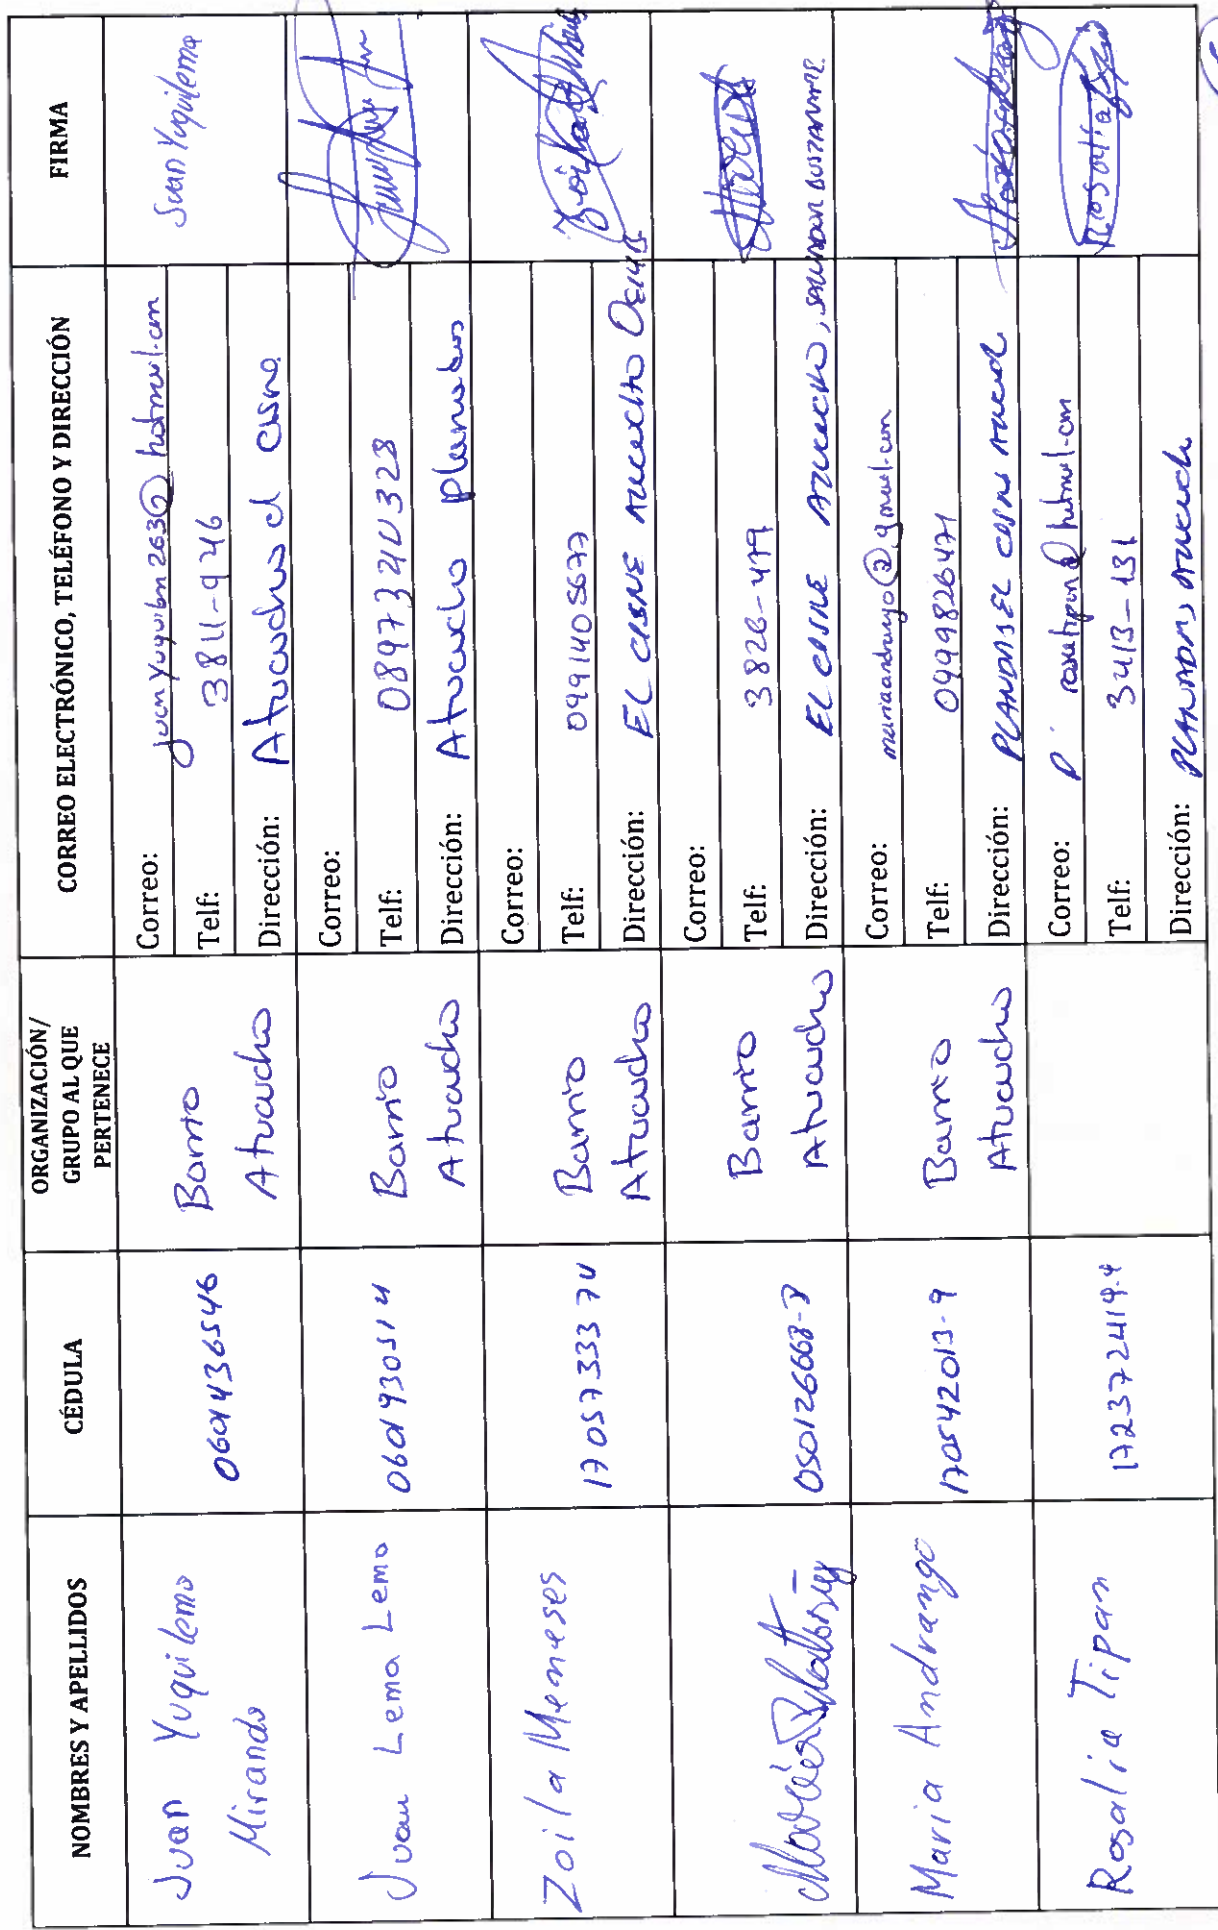 NOMBRES Y APELLIDOS
CÉDULA
ORGANIZACIÓN/
GRUPO AL QUE
PERTENECE
CORREO ELECTRÓNICO, TELÉFONO Y DIRECCIÓN
FIRMA
Juan Yuquilema
Miranda
0601436546
Barrio
Atucucho
Correo: juanyuquilm263@hotmail.com
Telf: 3811-946
Dirección: Atucucho el cisne
Juan Yuquilema
Juan Lema Lema
0601930514
Barrio
Atucucho
Correo:
Telf: 0897321U328
Dirección: Atucucho planadas
Zoila Meneses
1705733374
Barrio
Atucucho
Correo:
Telf: 0991405677
Dirección: EL CISNE ATUCUCHO
050126668-7
Barrio
Atucucho
Correo:
Telf: 3826-479
Dirección: EL CISNE ATUCUCHO, SALVADOR BUSTAMANTE
Maria Andrango
170542013-9
Barrio
Atucucho
Correo: mariaandrango@gmail.com
Telf: 0999826471
Dirección: PLANADAS EL CISNE
Rosalia Tipan
172372419-4
Correo: rosatipan@hotmail.com
Telf: 3413-131
Dirección: PLANADAS
Rosalia